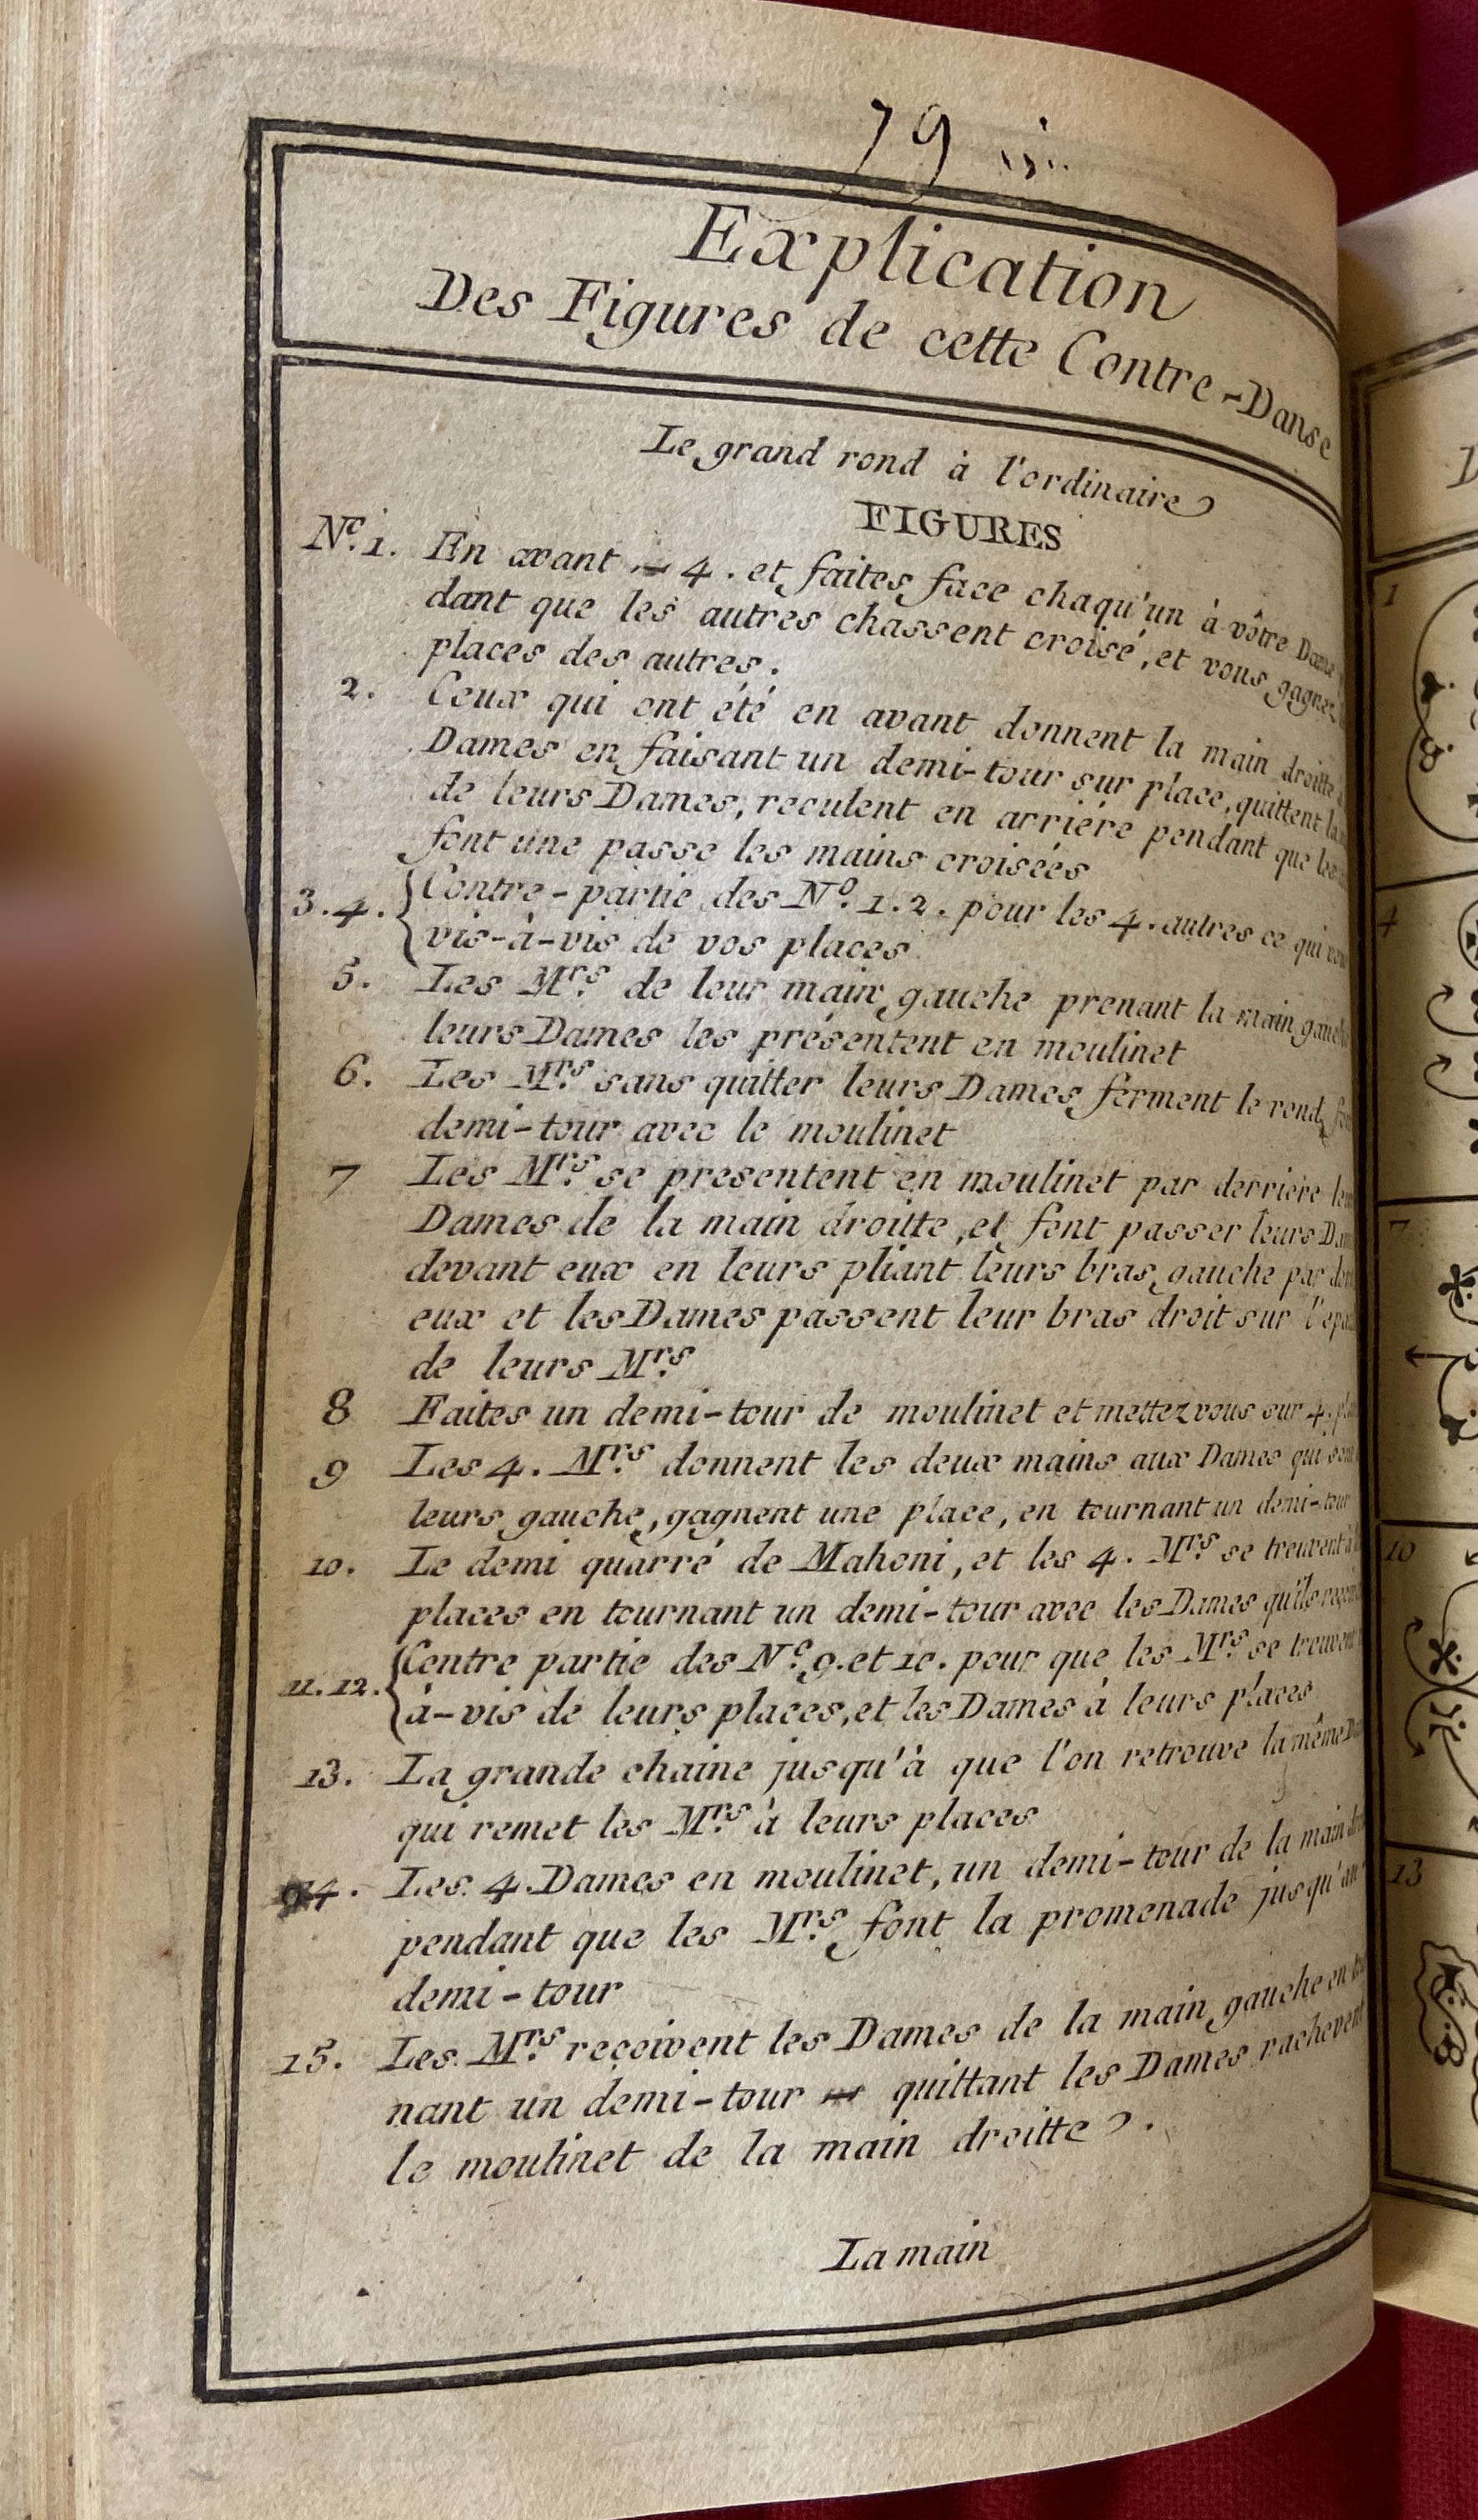 79
Explication
Des Figures de cette Contre-Danse
Le grand rond à l'ordinaire
FIGURES
N.º 1. En avant 4. et faites face chaqu'un à vôtre Dame
dant que les autres chassent croisé, et vous gagnez
places des autres.
2. Ceux qui ont été en avant donnent la main droitte
Dames en faisant un demi-tour sur place, quittent
de leurs Dames, reculent en arriére pendant que les
font une passe les mains croisées
3.4. Contre-partie des N.º 1.2. pour les 4. autres ce qui
vis-à-vis de vos places
5. Les M.rs de leur main gauche prenant la main
leurs Dames les présentent en moulinet
6. Les M.rs sans quitter leurs Dames ferment le rond,
demi-tour avec le moulinet
7 Les M.rs se presentent en moulinet par derriere
Dames de la main droitte, et font passer leurs
devant eux en leurs pliant leurs bras gauche par
eux et les Dames passent leur bras droit sur
de leurs M.rs
8 Faites un demi-tour de moulinet et mettez vous sur 4.
9 Les 4. M.rs donnent les deux mains aux Dames qui
leurs gauche, gagnent une place, en tournant un demi-tour
10. Le demi quarré de Mahoni, et les 4. M.rs se treuvent
places en tournant un demi-tour avec les Dames qu'ils
11.12. Contre partie des N.º 9. et 10. pour que les M.rs se treuvent
à-vis de leurs places, et les Dames à leurs places
13. La grande chaine jusqu'à que l'on retrouve la même
qui remet les M.rs à leurs places
14. Les 4. Dames en moulinet, un demi-tour de la main
pendant que les M.rs font la promenade jusqu'au
demi-tour
15. Les M.rs reçoivent les Dames de la main gauche en
nant un demi-tour quittant les Dames rachevent
le moulinet de la main droitte.
La main
1
4
7
10
13